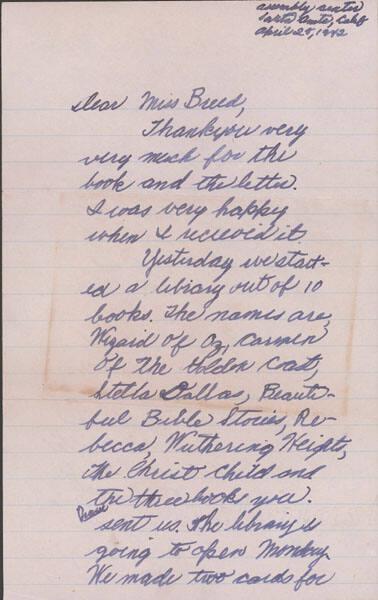 assembly center
Santa Anita, Calif
April 25, 1942
Dear Miss Breed,
Thankyou very
very much for the
book and the letter.
I was very happy
when I recieved it.
Yesterday we start-
ed a library out of 10
books. The names are,
Wizard of Oz, Carmen
of the Golden Coast,
Stella Dallas, Beauti-
ful Bible Stories, Re-
becca, Wuthering Heights,
the Christ Child and
the three books you
sent us. The library is
going to open Monday.
We made two cards for